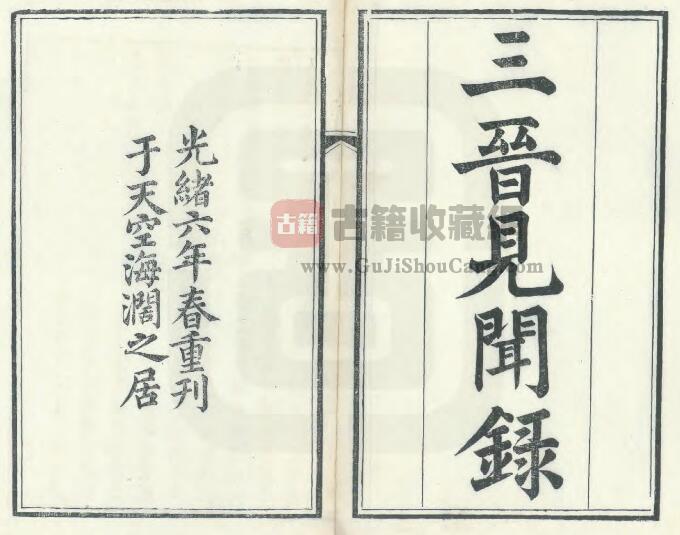 三晉見聞録
光緒六年春重刊
于天空海濶之居
古籍
古籍收藏
www.GuJiShouCang.com